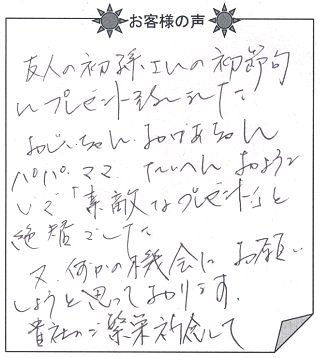 お客様の声
友人の初孫さんの初節句
にプレゼント致しました
おじいちゃん、おばあちゃん
パパ、ママ、たいへんおよろこ
びで「素敵なプレゼント」と
絶賛でした
又、何かの機会にお願い
しようと思っております。
貴社のご繁栄祈念して